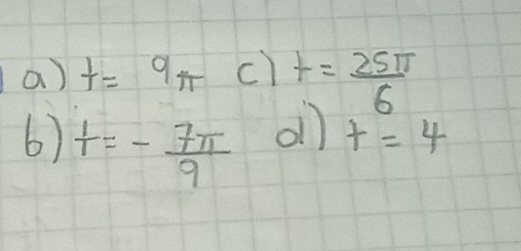 a) t = 9π c) t = 25π/6
b) t = - 7π/9 d) t = 4